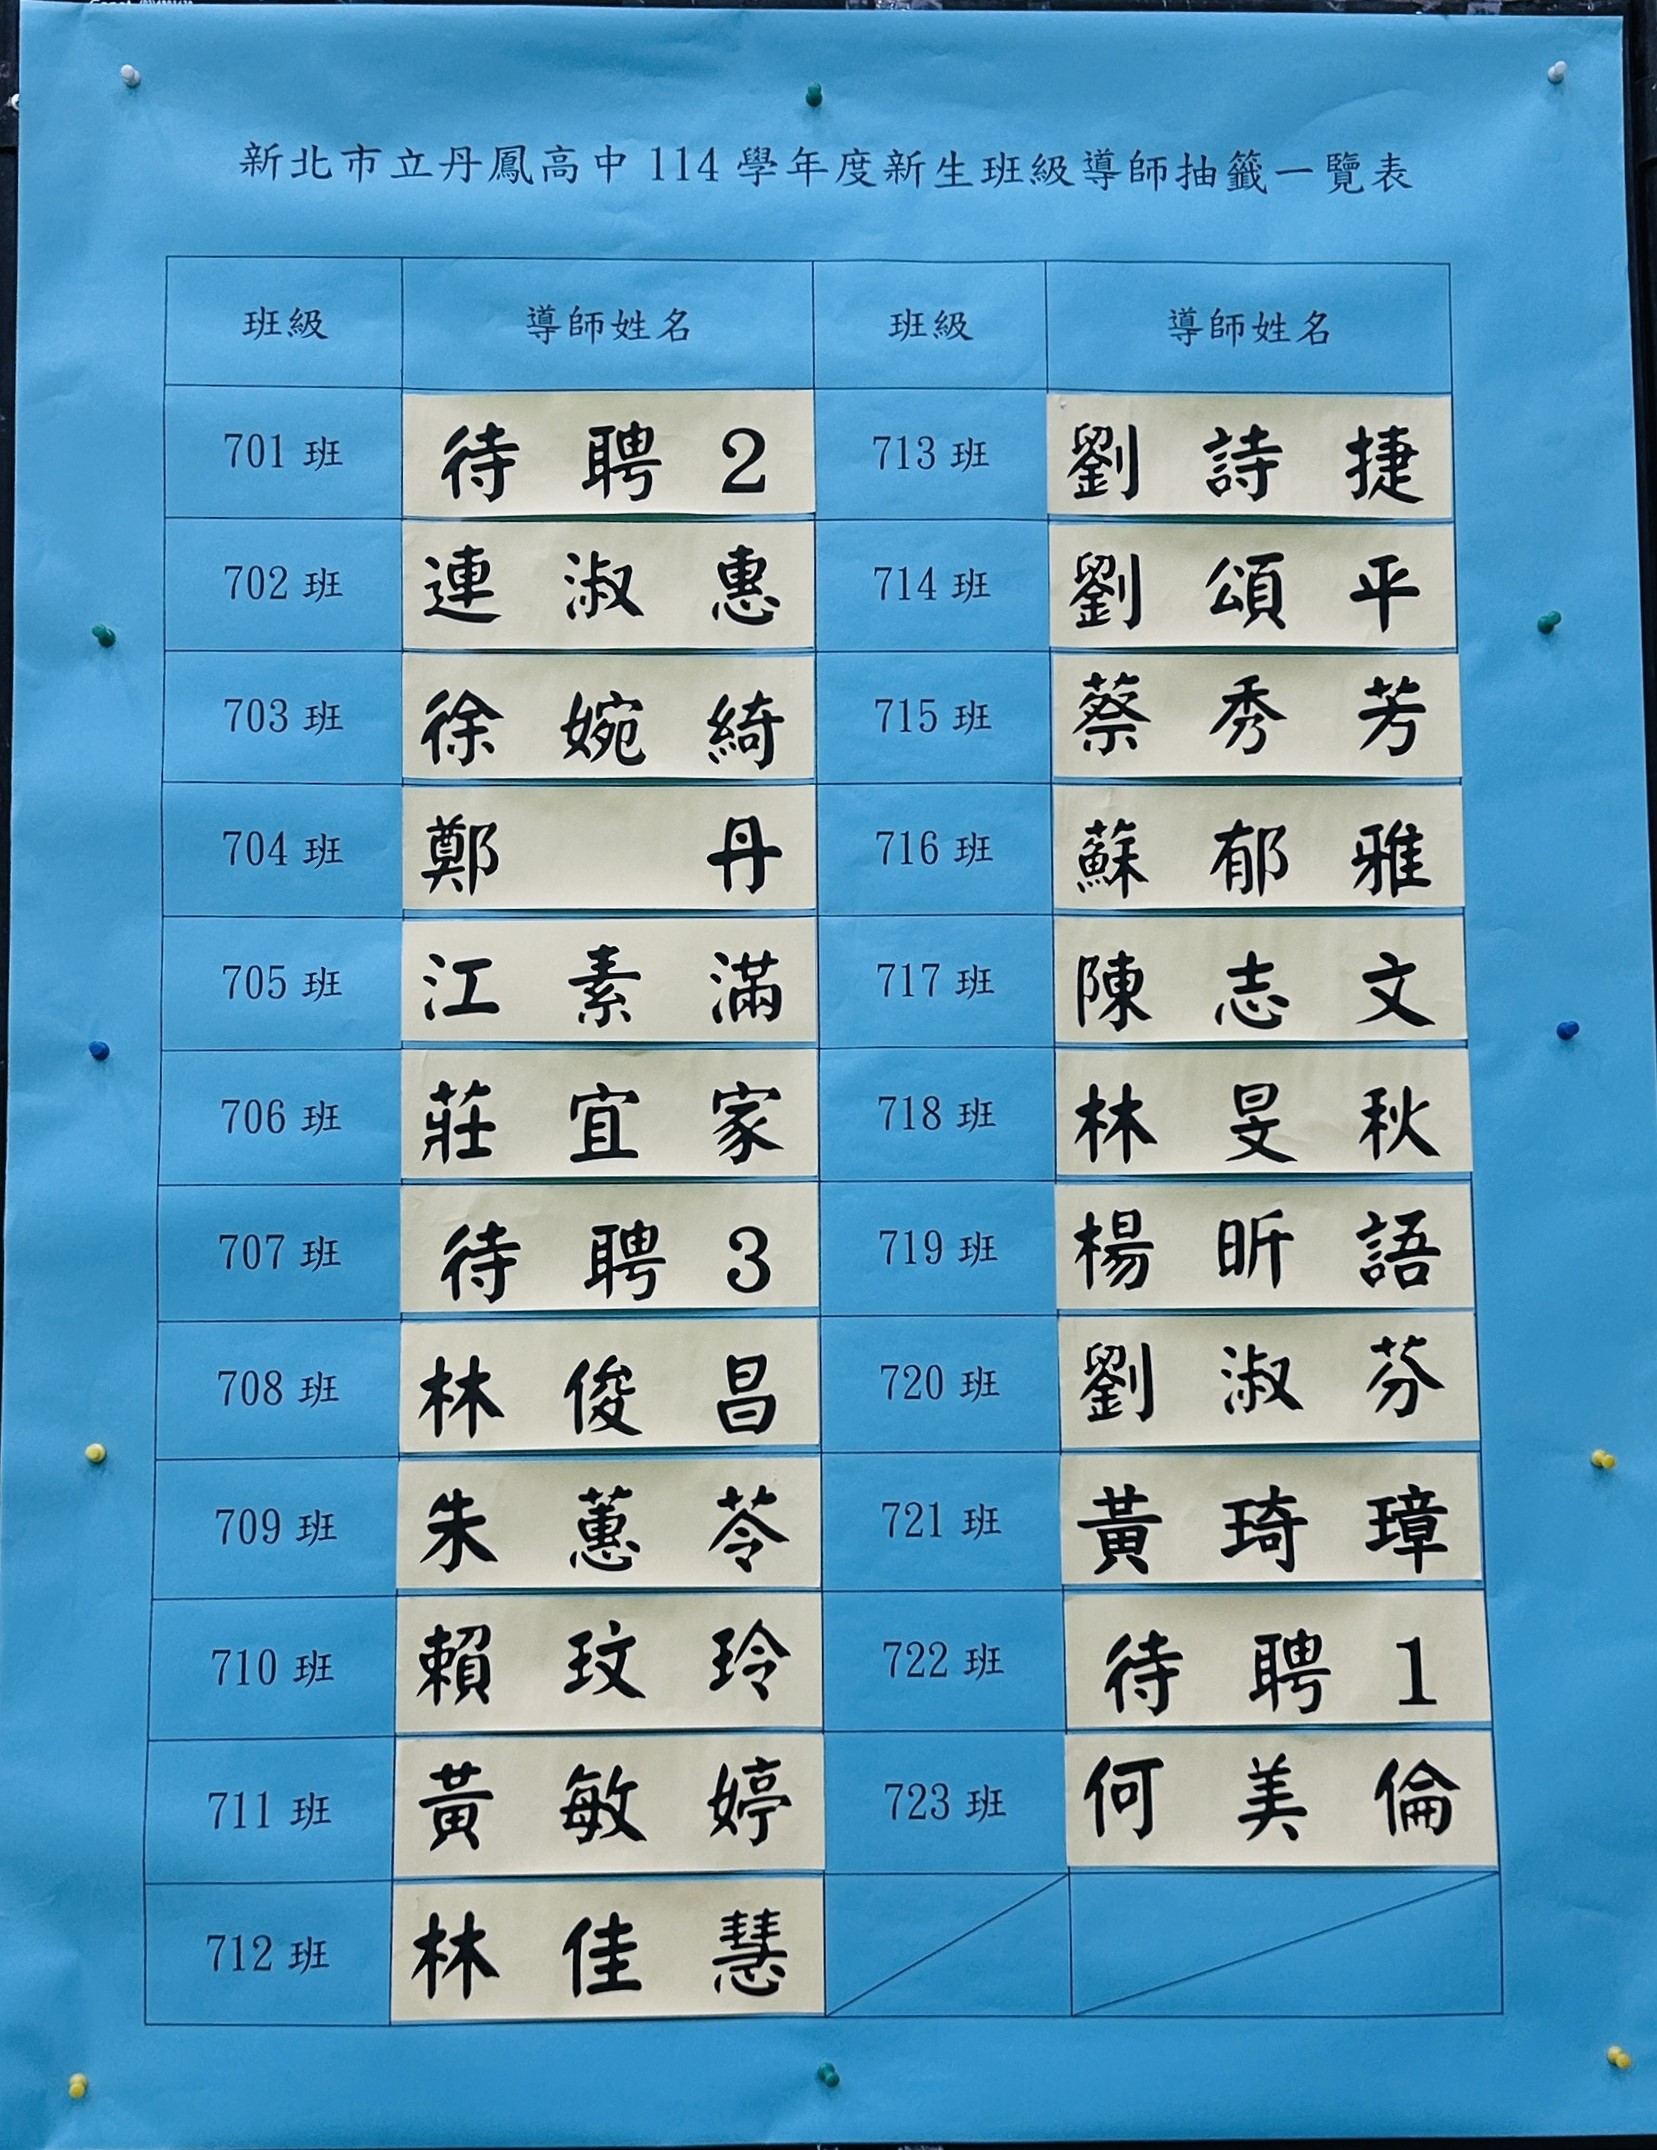 新北市立丹鳳高中 114 學年度新生班級導師抽籤一覽表
班級 導師姓名 班級 導師姓名
701 班 待聘2 713 班 劉詩捷
702 班 連淑惠 714 班 劉頌平
703 班 徐婉綺 715 班 蔡秀芳
704 班 鄭丹 716 班 蘇郁雅
705 班 江素滿 717 班 陳志文
706 班 莊宜家 718 班 林旻秋
707 班 待聘3 719 班 楊昕語
708 班 林俊昌 720 班 劉淑芬
709 班 朱蕙苓 721 班 黃琦璋
710 班 賴玟玲 722 班 待聘1
711 班 黃敏婷 723 班 何美倫
712 班 林佳慧